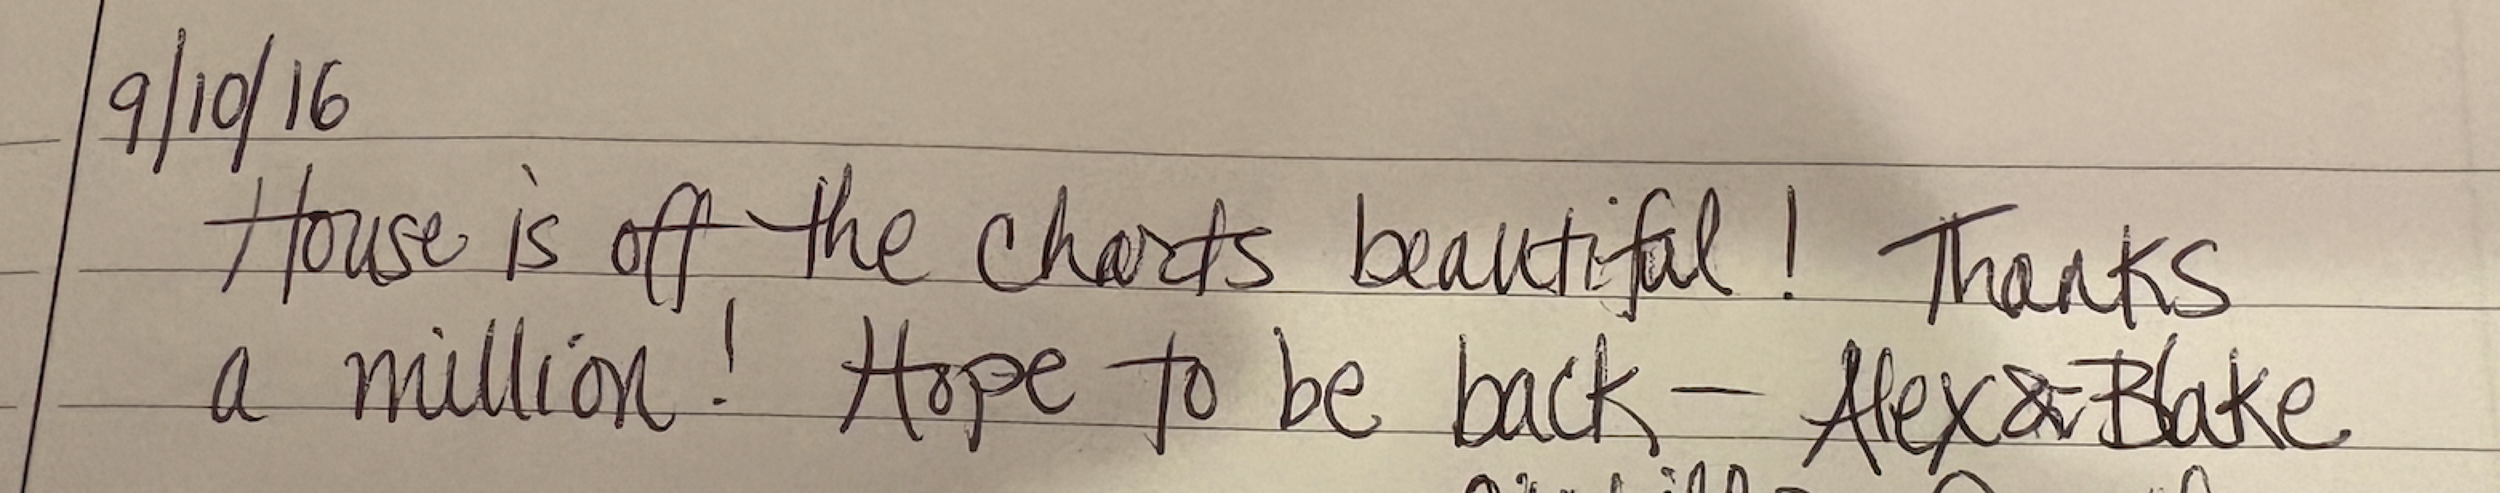 9/10/16
House is off the charts beautiful! Thanks
a million! Hope to be back - Alex & Blake